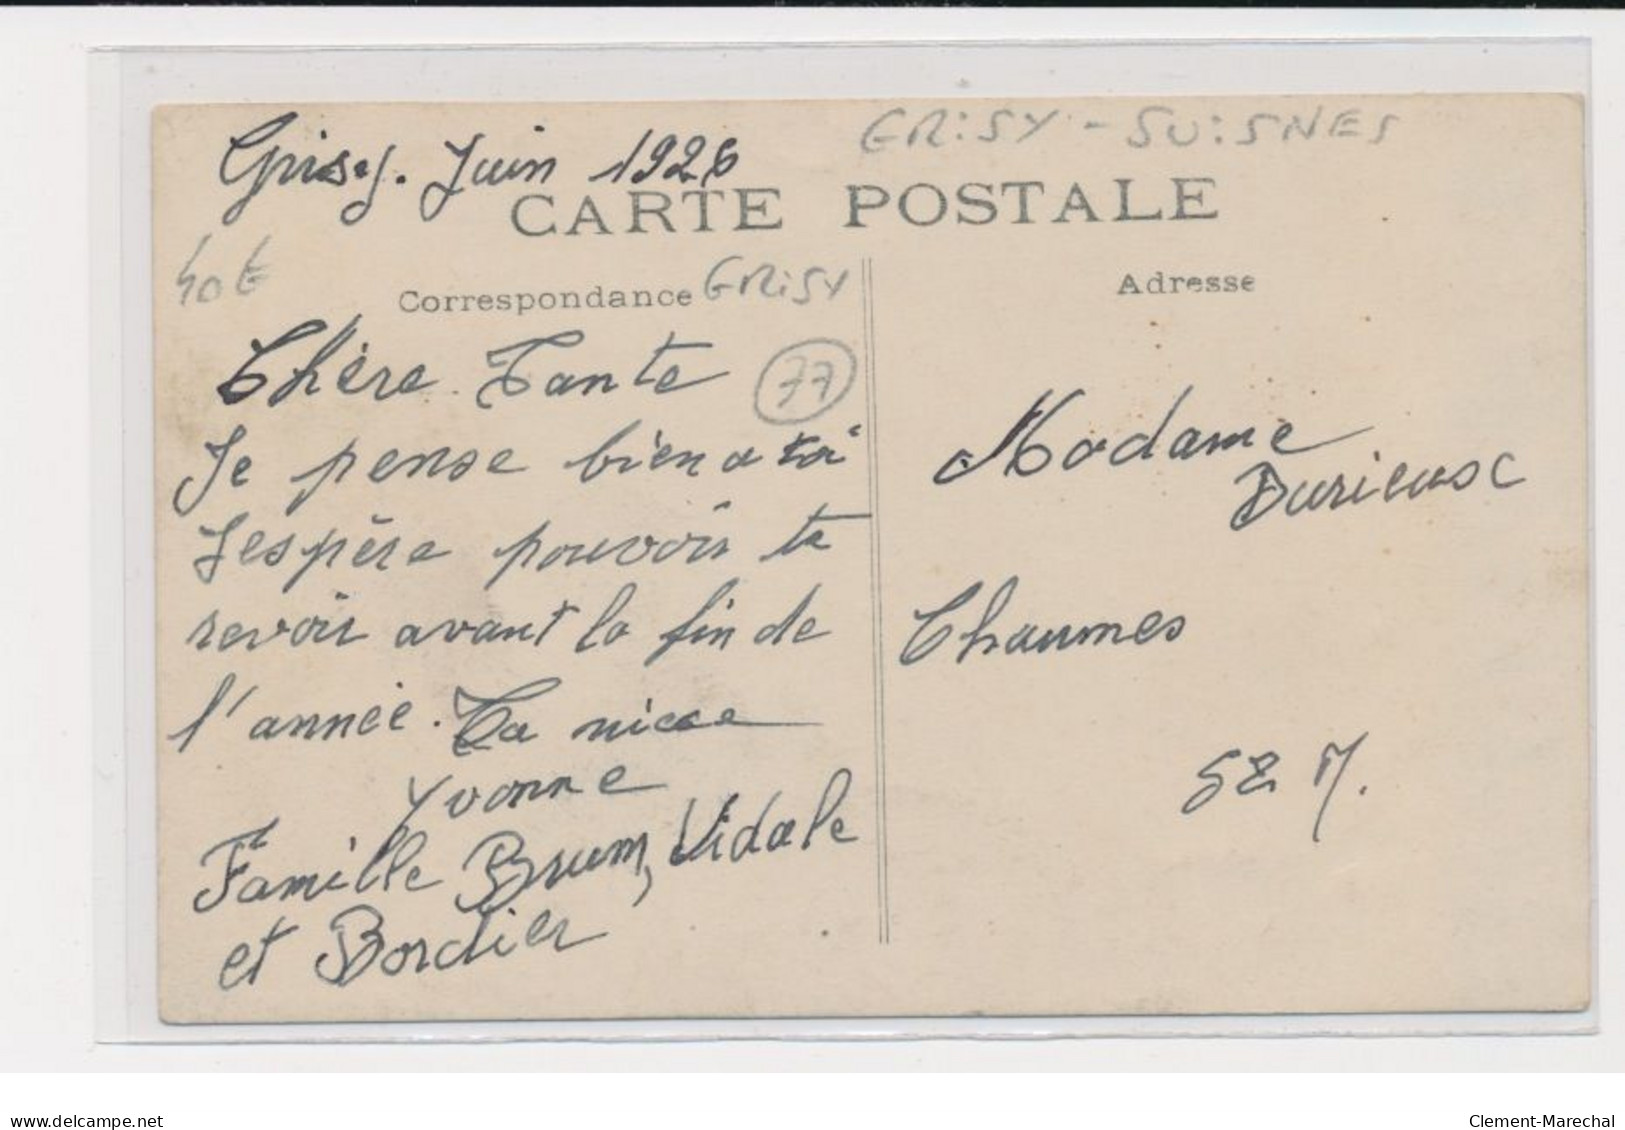 Grisy. Juin 1926
GRiSY - SUiSNES
CARTE POSTALE
40€
Correspondance
GRiSY
Adresse
Chère Tante
77
Je pense bien a toi
Jespère pouvoir te
revoir avant la fin de
l'année. Ta niece
Yvonne
Famille Brum, Vidale
et Bordier
Madame
Durieux
Chaumes
S & M.
www.delcampe.net
Clement-Marechal